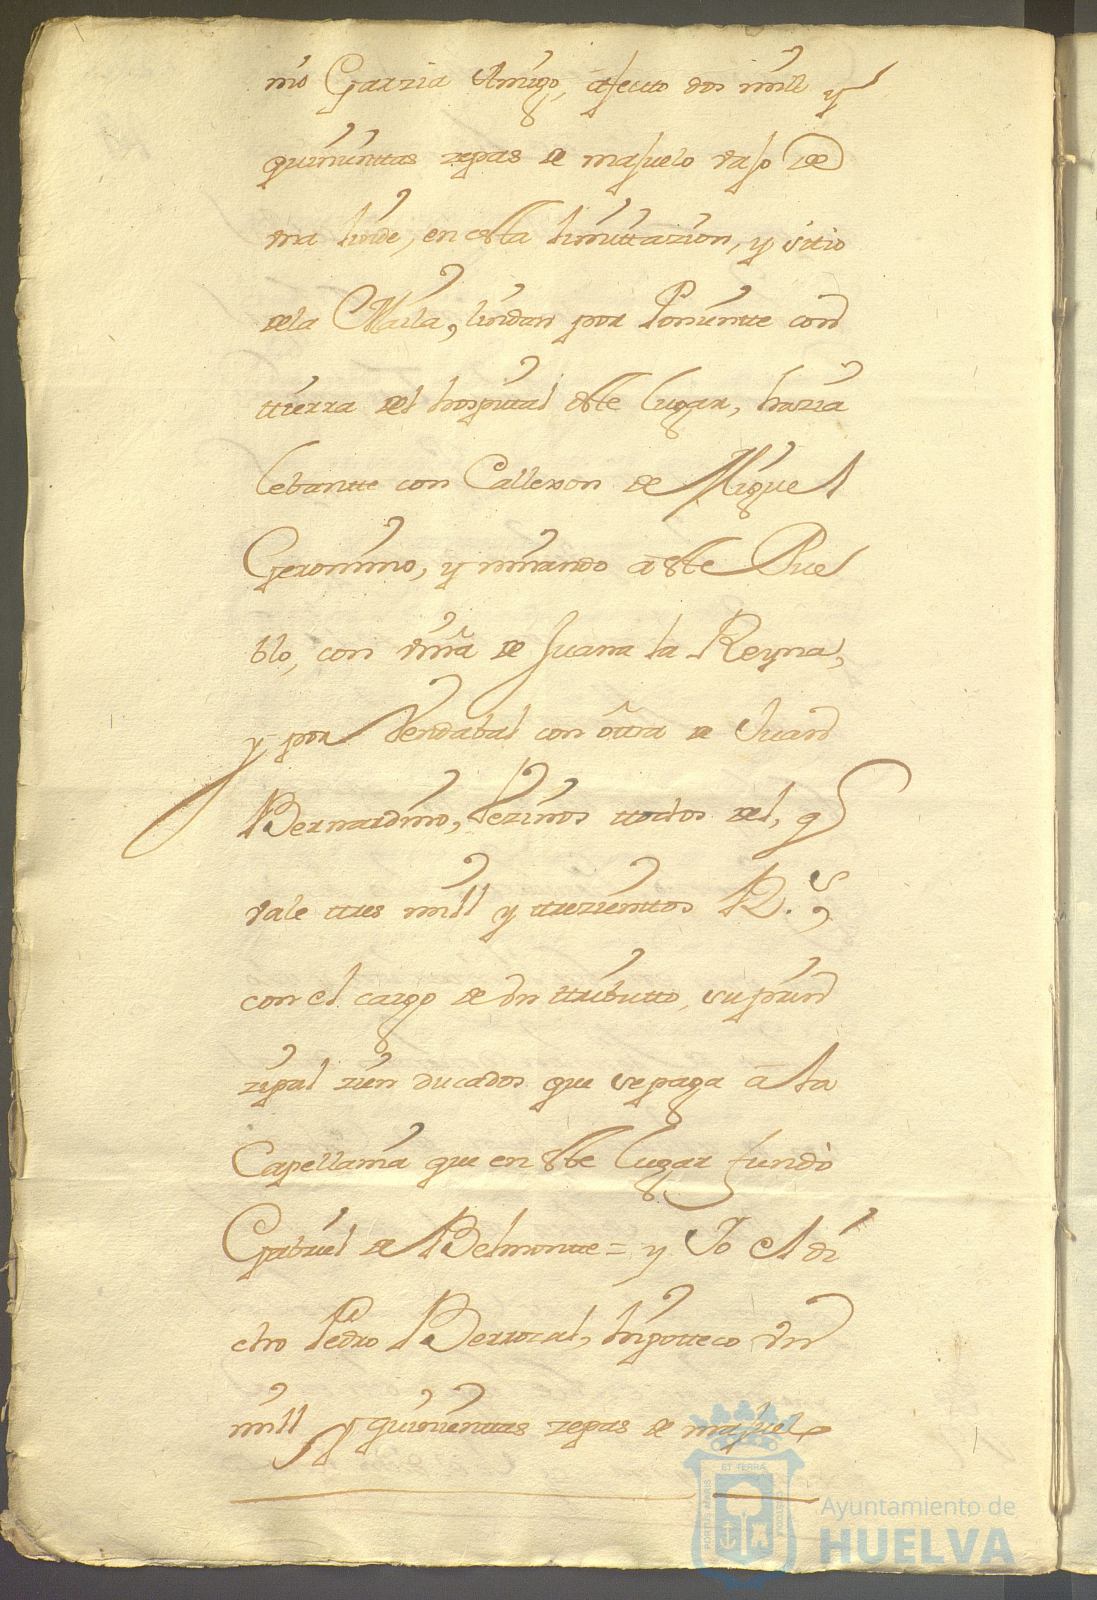 nio Garzia Amigo, afecto dos mill y
quinienttas zepas de majuelo vajo de
vna linde, en estta limittazion, y sitio
de la Maila, lindan por Ponientte con
ttierra del hospital estte lugar, hazia
lebantte con Callexon de Miguel
Geronimo, y mirando a estte Pue
blo, con viña de Juana la Reyna,
y por Vendabal con ottra de Juan
Bernardino, Vezinos ttodos del, q
vale ttres mill y ttrezienttos R.s
con el cargo de vn ttributto, su prin
zipal zien ducados que se paga a la
Capellania que en estte lugar fundò
Gabriel de Belmontte = y Yo el di
cho Pedro Berrocal, hipotteco vn
mill y quinienttas zepas de majuelo
ET TERRÆ
PORTUS MARIS
CUSTODIA
Ayuntamiento de
HUELVA